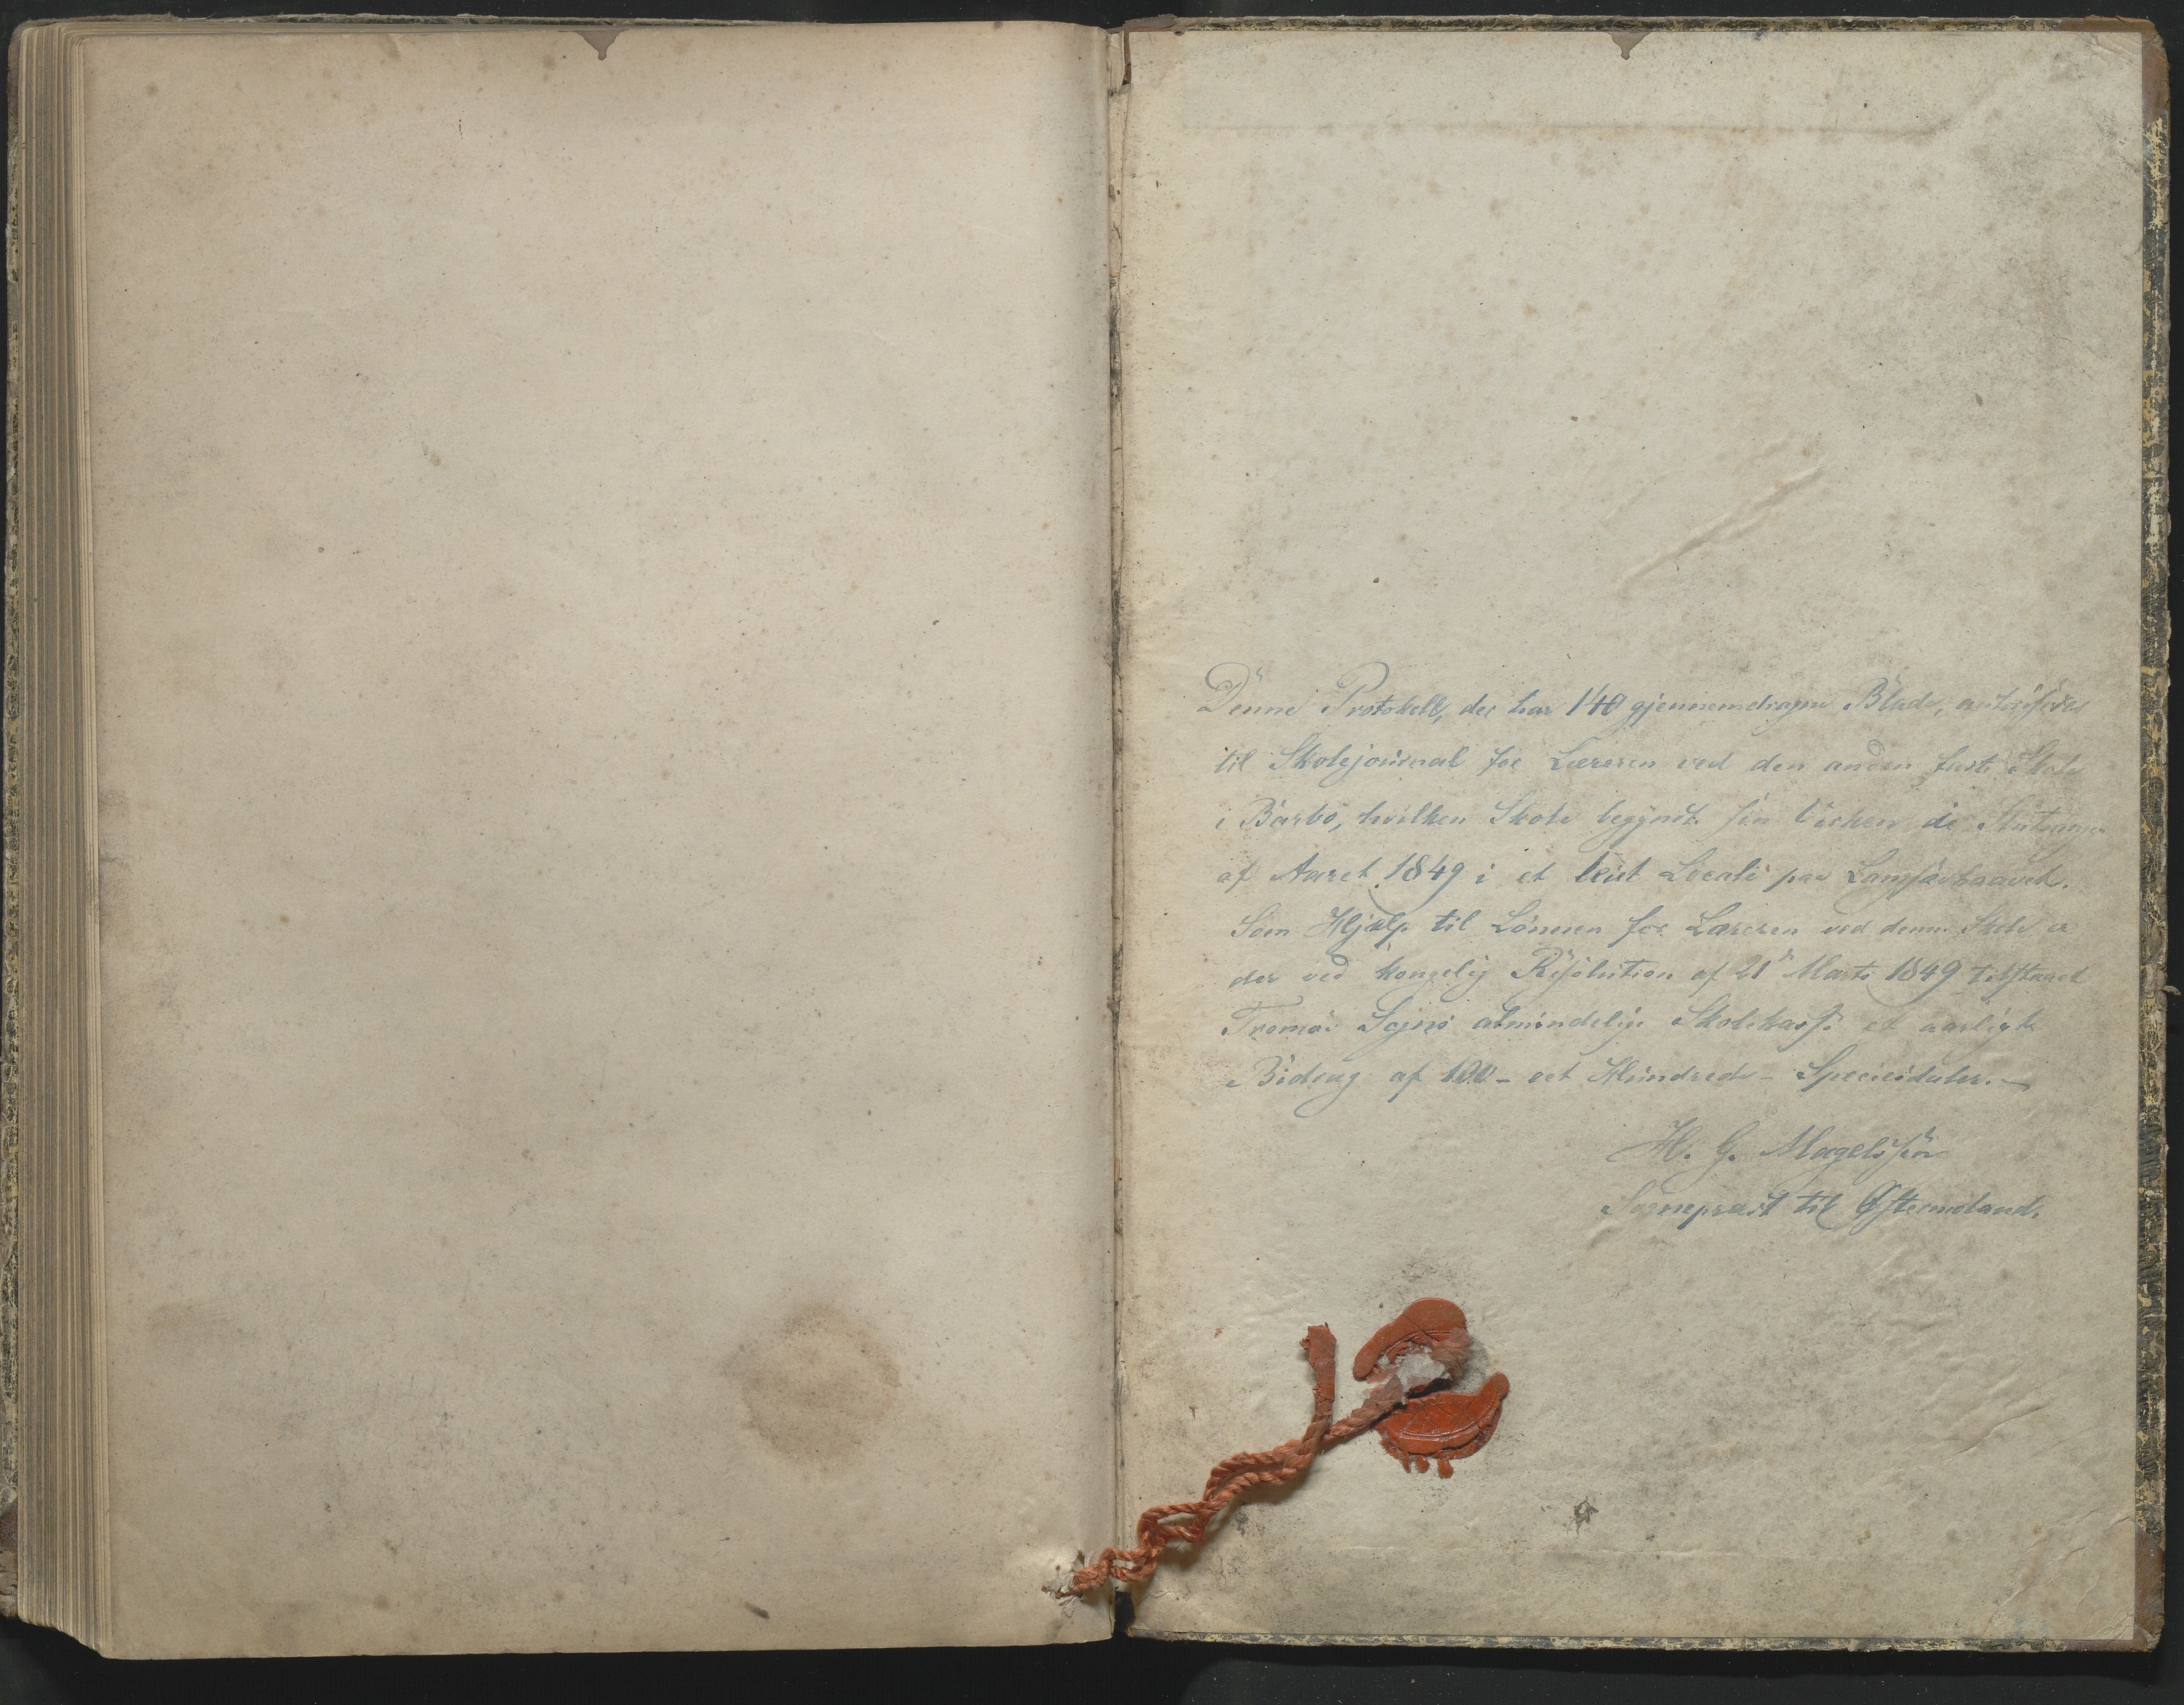 Denne Protokoll, der har 140 gjennemdragne Blade, autoriseres
til Skolejournal for Læreren ved den anden faste Skole
i Barbo, hvilken Skole begyndte sin Virken i Slutningen
af Aaret 1849 i et leiet Locale paa Langsævhaavet.
Som Hjælp til Lønnen for Læreren ved denne Skole er
der ved kongelig Resolution af 21 Marts 1849 tilstaaet
Tromøe Sogns almindelige Skolekasse et aarligt
Bidrag af 100 - eet Hundrede - Speciesdaler. -
H. G. Magelssen
Sognepræst til Østermoland.